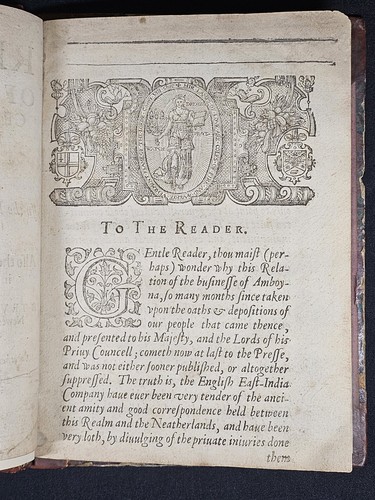 TO THE READER.
GEntle Reader, thou maist (per-
haps) wonder why this Rela-
tion of the businesse of Amboy-
na, so many months since taken
vpon the oaths & depositions of
our people that came thence,
and presented to his Majesty, and the Lords of his
Priuy Councell; cometh now at last to the Presse,
and was not either sooner published, or altogether
suppressed. The truth is, the English East-India
Company haue euer been very tender of the anci-
ent amity and good correspondence held between
this Realm and the Neatherlands, and haue been
very loth, by divulging of the priuate iniuries done
them